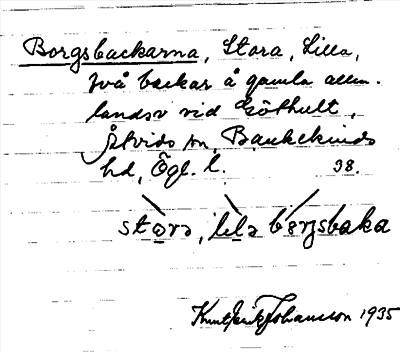 Borgsbackarna, Stora, Lilla,
två backar å gamla allm.
landsv vid Göthult,
Åtvids sn, Bankekinds
hd, Ögl. l. 38.
stora, lila börjsbaka
Knut Erik Johansson 1935